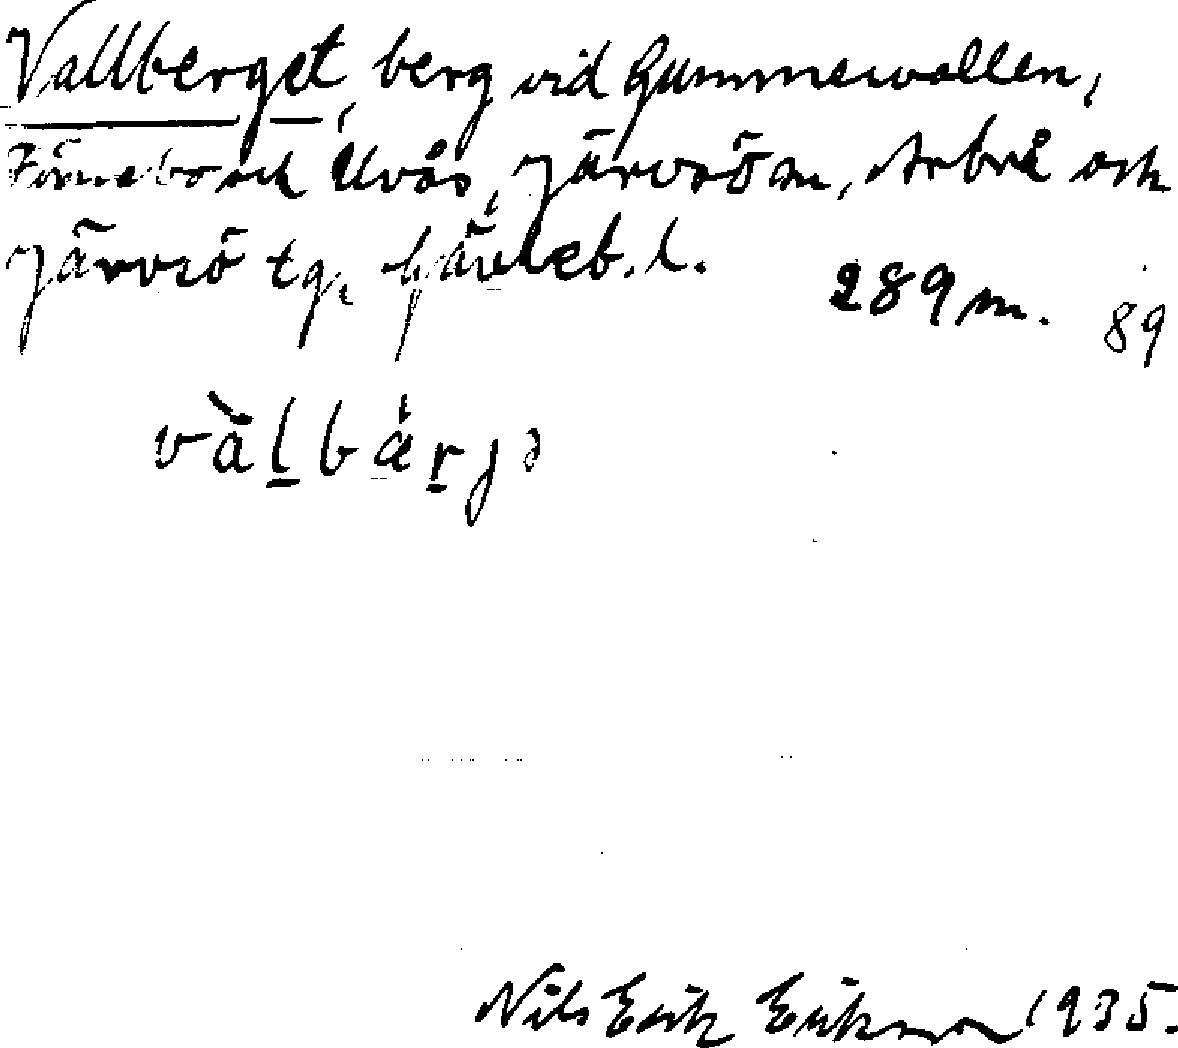 Vallberget, berg vid Gummervallen,
Förnebo och Uvås, Järvsö sn, Arbrå och
Järvsö tg, Gävleb. l. 289 m. 89
vàl̠bǽr̠jə
Nils Erik Erikson 1935.